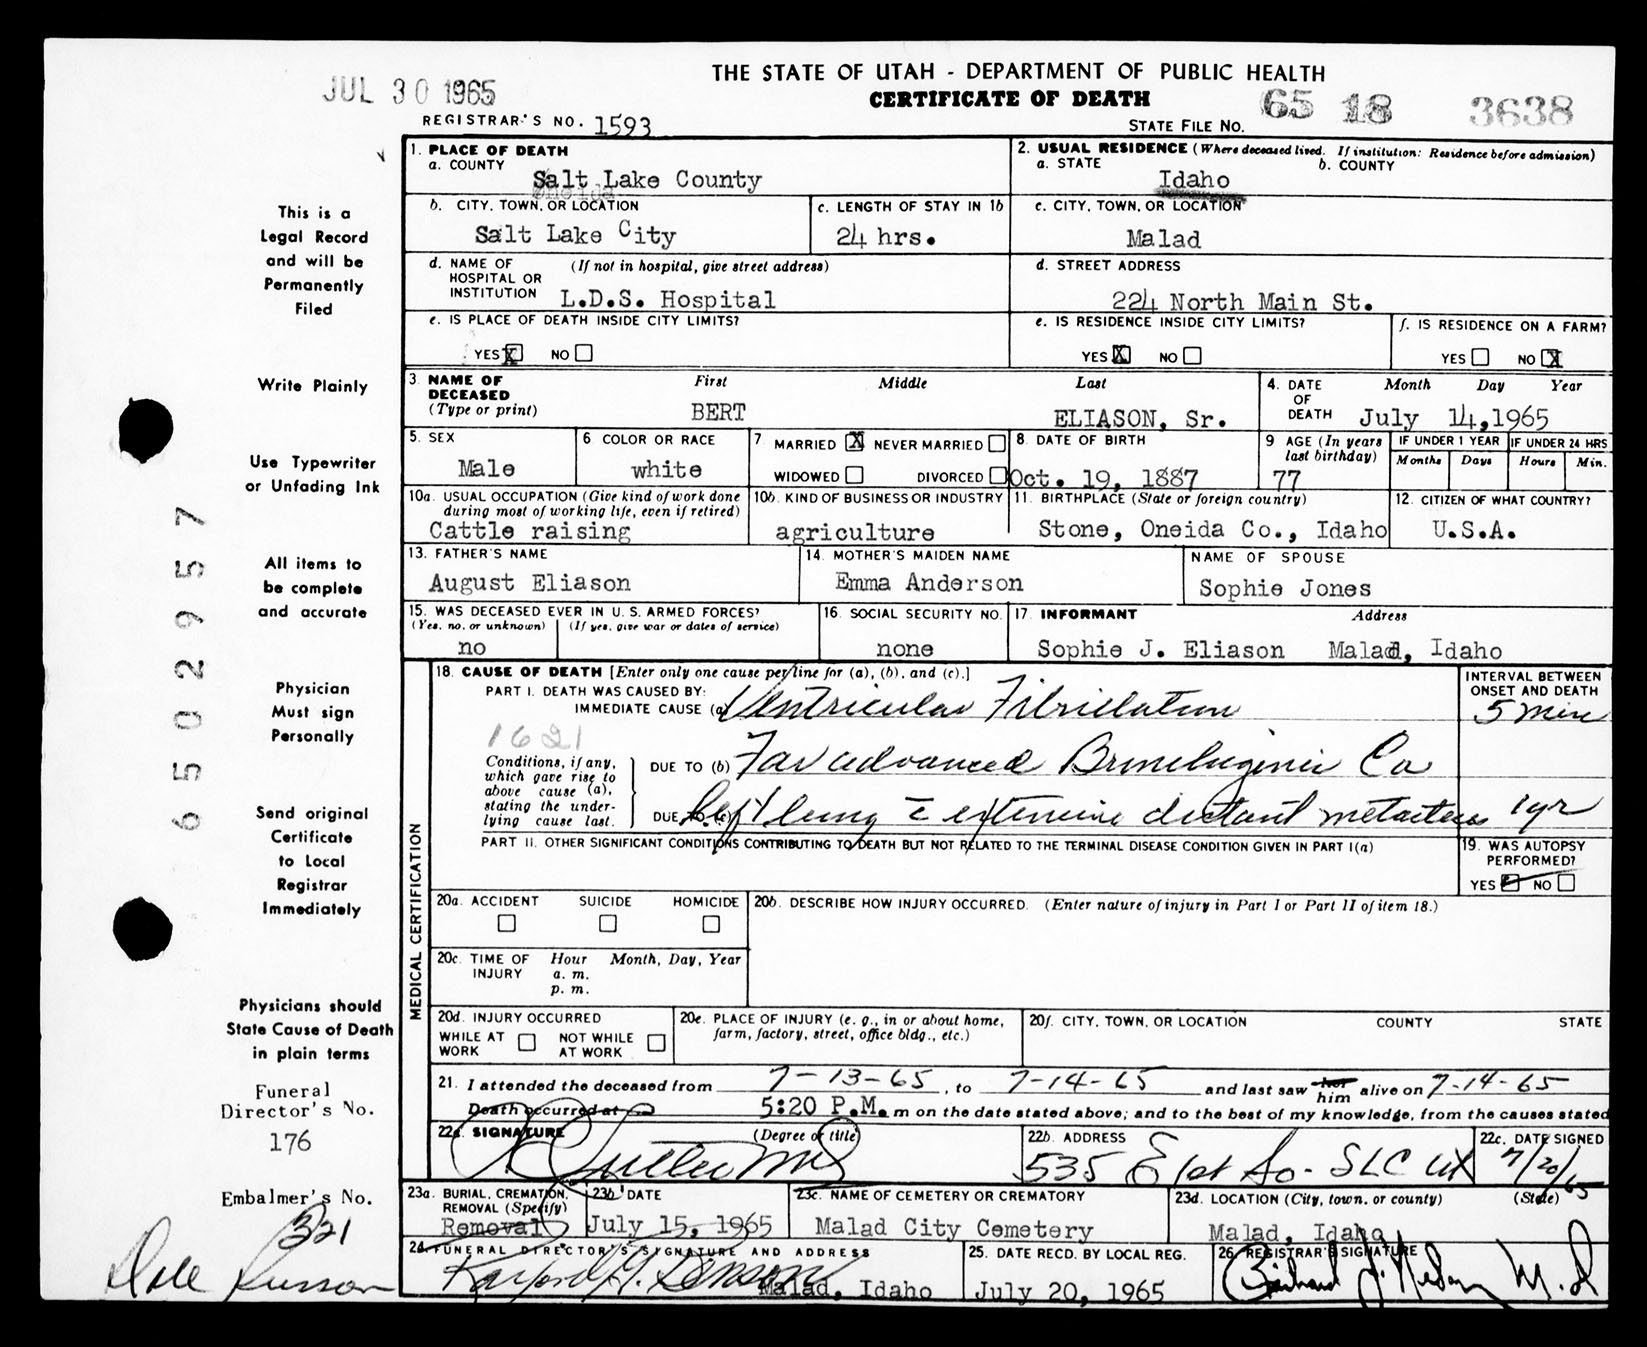 JUL 30 1965
THE STATE OF UTAH - DEPARTMENT OF PUBLIC HEALTH
CERTIFICATE OF DEATH
65 18 3638
REGISTRAR'S NO. 1593
STATE FILE NO.
1. PLACE OF DEATH
a. COUNTY
Salt Lake County
2. USUAL RESIDENCE (Where deceased lived. If institution: Residence before admission)
a. STATE b. COUNTY
Idaho
Oneida
b. CITY, TOWN, OR LOCATION
Salt Lake City
c. LENGTH OF STAY IN 1b
24 hrs.
c. CITY, TOWN, OR LOCATION
Malad
d. NAME OF HOSPITAL OR INSTITUTION (If not in hospital, give street address)
L.D.S. Hospital
d. STREET ADDRESS
224 North Main St.
e. IS PLACE OF DEATH INSIDE CITY LIMITS?
YES X NO
e. IS RESIDENCE INSIDE CITY LIMITS?
YES X NO
f. IS RESIDENCE ON A FARM?
YES NO X
3. NAME OF DECEASED (Type or print)
First Middle Last
BERT ELIASON, Sr.
4. DATE OF DEATH Month Day Year
July 14,1965
5. SEX
Male
6 COLOR OR RACE
white
7 MARRIED X NEVER MARRIED
WIDOWED DIVORCED
8. DATE OF BIRTH
Oct. 19, 1887
9 AGE (In years last birthday)
77
IF UNDER 1 YEAR
Months Days
IF UNDER 24 HRS
Hours Min.
10a. USUAL OCCUPATION (Give kind of work done during most of working life, even if retired)
Cattle raising
10b. KIND OF BUSINESS OR INDUSTRY
agriculture
11. BIRTHPLACE (State or foreign country)
Stone, Oneida Co., Idaho
12. CITIZEN OF WHAT COUNTRY?
U.S.A.
13. FATHER'S NAME
August Eliason
14. MOTHER'S MAIDEN NAME
Emma Anderson
NAME OF SPOUSE
Sophie Jones
15. WAS DECEASED EVER IN U.S. ARMED FORCES?
(Yes, no, or unknown) (If yes, give war or dates of service)
no
16. SOCIAL SECURITY NO.
none
17. INFORMANT Address
Sophie J. Eliason Malad, Idaho
MEDICAL CERTIFICATION
18. CAUSE OF DEATH [Enter only one cause per line for (a), (b), and (c).]
PART I. DEATH WAS CAUSED BY:
IMMEDIATE CAUSE (a) Ventricular Fibrillation
INTERVAL BETWEEN ONSET AND DEATH
5 min
1621
Conditions, if any, which gave rise to above cause (a), stating the underlying cause last.
DUE TO (b) Far advanced Bronchogenic Ca
DUE TO (c) Left lung c̄ extensive distant metastases 1 yr
PART II. OTHER SIGNIFICANT CONDITIONS CONTRIBUTING TO DEATH BUT NOT RELATED TO THE TERMINAL DISEASE CONDITION GIVEN IN PART I(a)
19. WAS AUTOPSY PERFORMED?
YES NO
20a. ACCIDENT SUICIDE HOMICIDE
20b. DESCRIBE HOW INJURY OCCURRED. (Enter nature of injury in Part I or Part II of item 18.)
20c. TIME OF INJURY Hour Month, Day, Year
a. m.
p. m.
20d. INJURY OCCURRED
WHILE AT WORK NOT WHILE AT WORK
20e. PLACE OF INJURY (e. g., in or about home, farm, factory, street, office bldg., etc.)
20f. CITY, TOWN, OR LOCATION COUNTY STATE
21. I attended the deceased from 7-13-65, to 7-14-65 and last saw her him alive on 7-14-65
Death occurred at 5:20 P.M. m on the date stated above; and to the best of my knowledge, from the causes stated
22a. SIGNATURE (Degree or title)
22b. ADDRESS
535 E 1st So - SLC Ut
22c. DATE SIGNED
7/20/65
23a. BURIAL, CREMATION, REMOVAL (Specify)
Removal
23b. DATE
July 15, 1965
23c. NAME OF CEMETERY OR CREMATORY
Malad City Cemetery
23d. LOCATION (City, town, or county) (State)
Malad, Idaho
24. FUNERAL DIRECTOR'S SIGNATURE AND ADDRESS
Malad, Idaho
25. DATE RECD. BY LOCAL REG.
July 20, 1965
26. REGISTRAR'S SIGNATURE
M.D
This is a
Legal Record
and will be
Permanently
Filed
Write Plainly
Use Typewriter
or Unfading Ink
All items to
be complete
and accurate
Physician
Must sign
Personally
Send original
Certificate
to Local
Registrar
Immediately
Physicians should
State Cause of Death
in plain terms
Funeral
Director's No.
176
Embalmer's No.
321
Dale
6502957